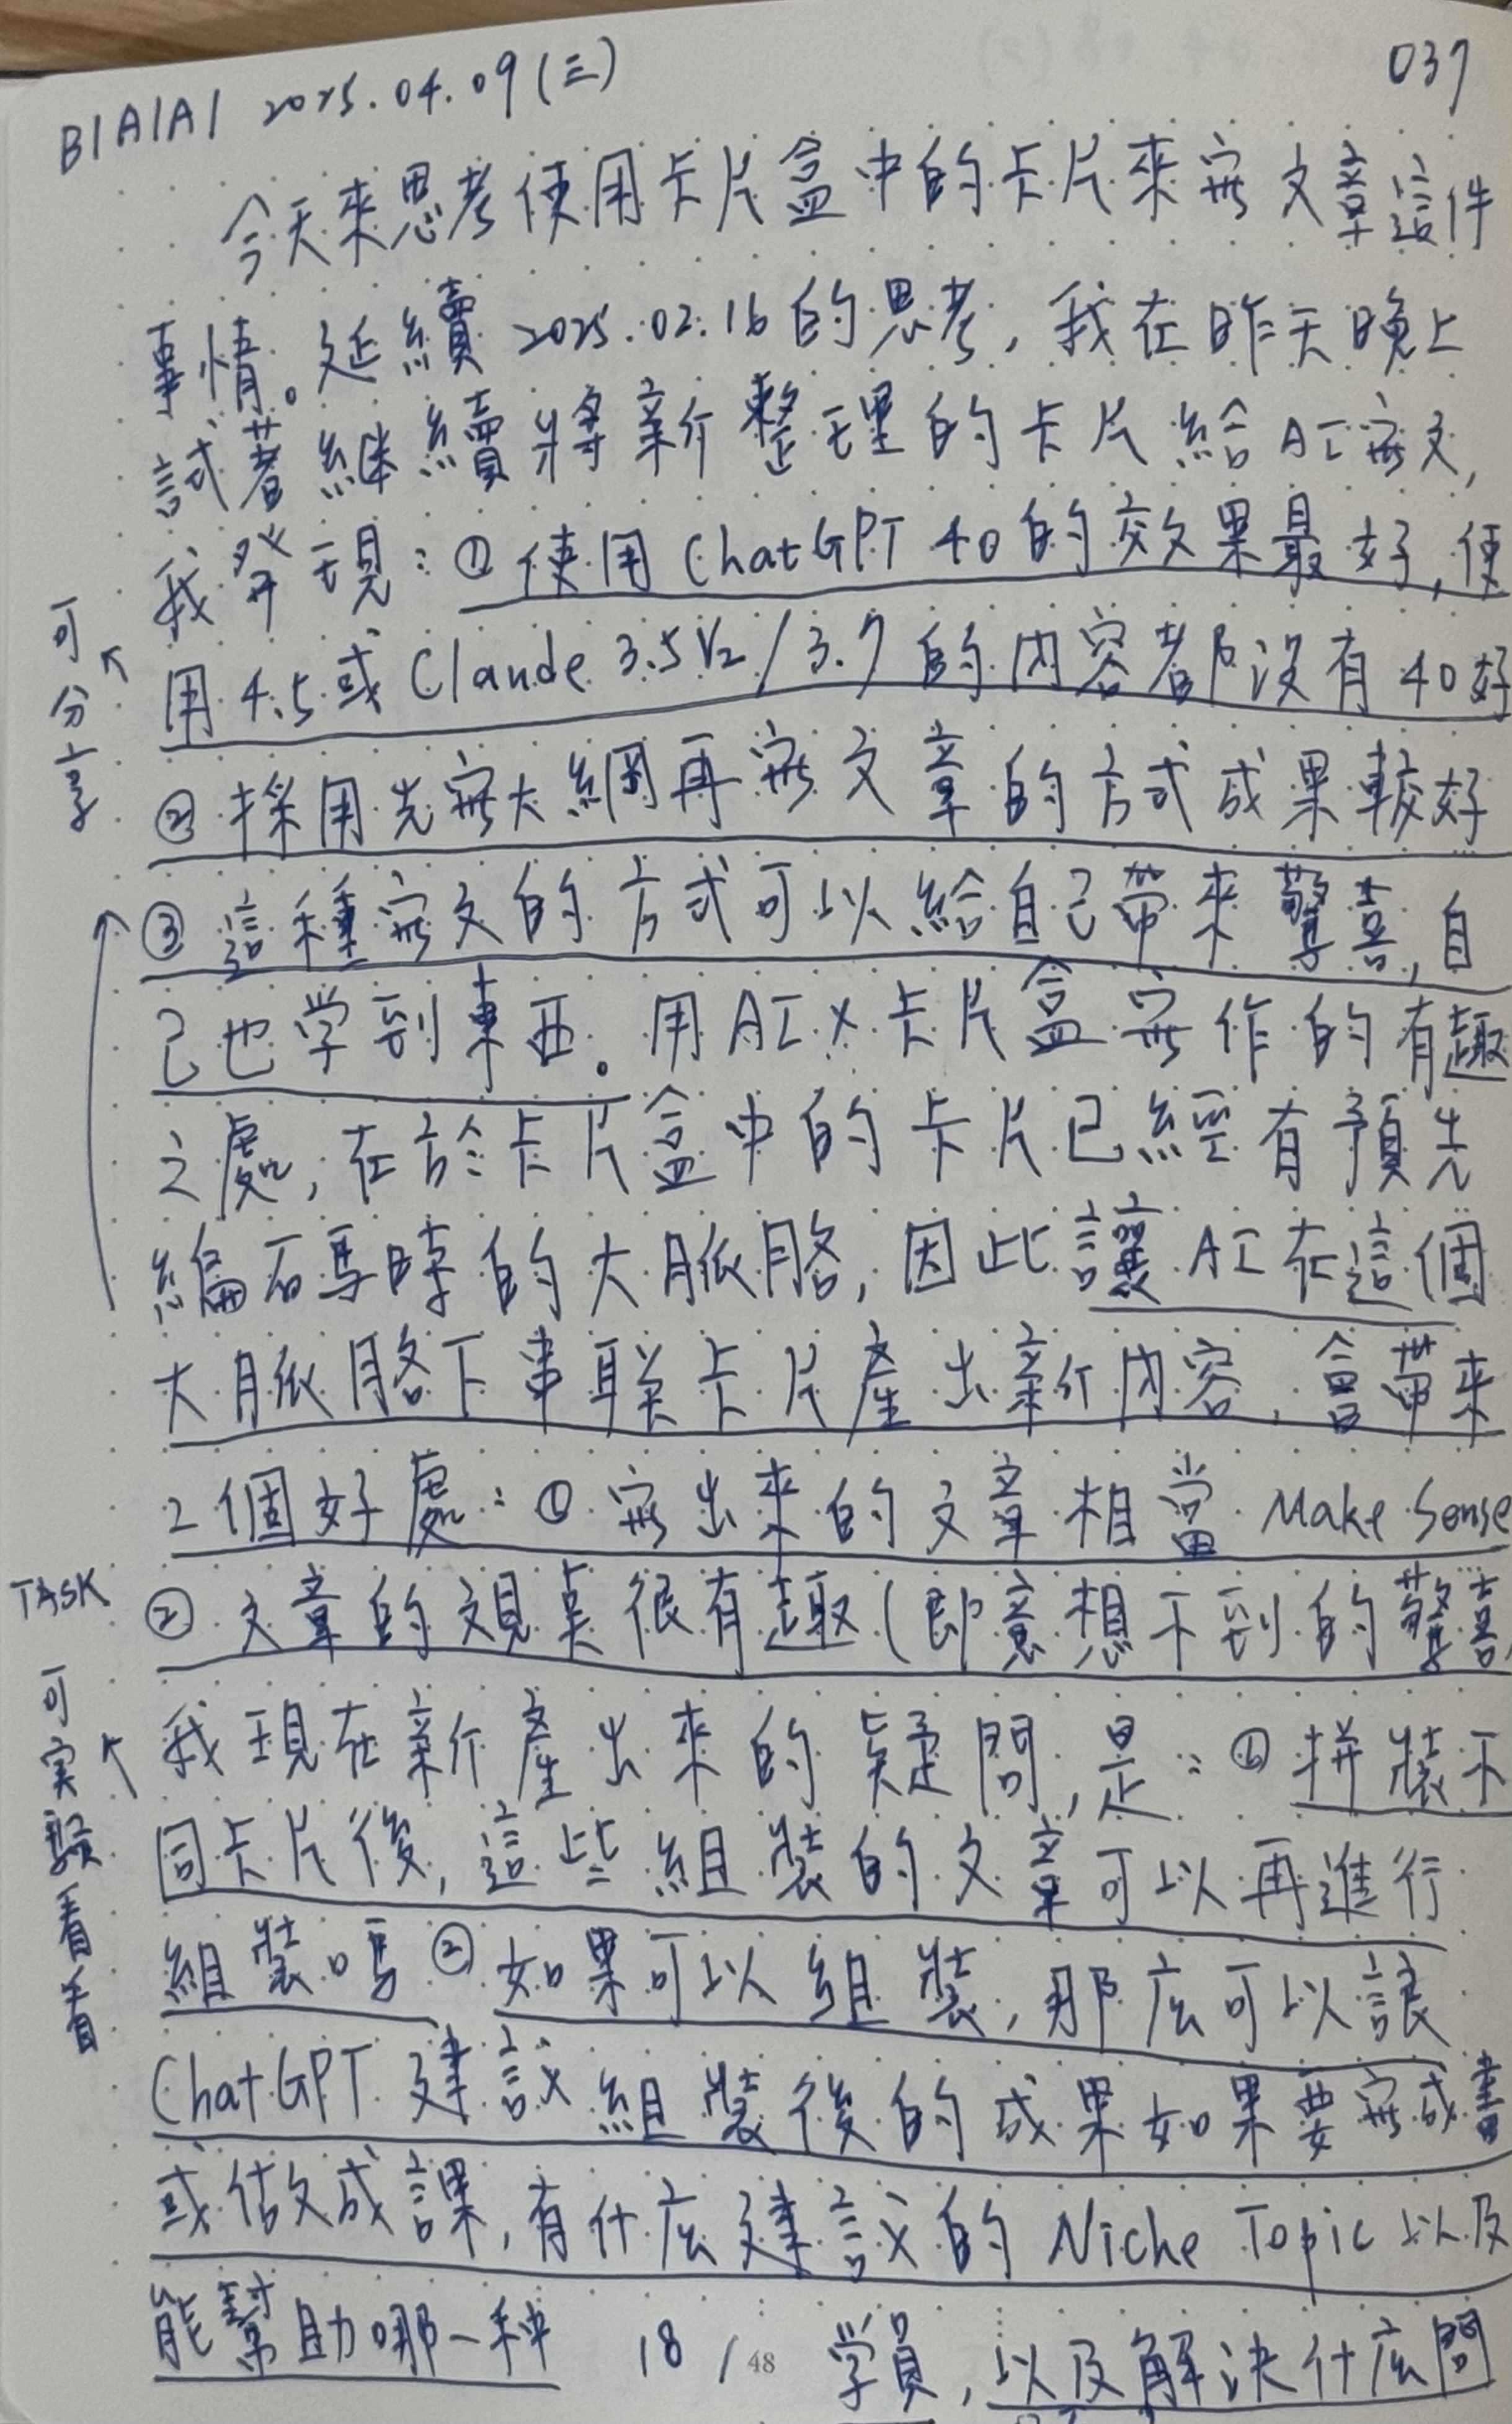 B1A1A1 2025.04.09(三)
037
今天來思考使用卡片盒中的卡片來寫文章這件
事情。延續2025.02.16的思考,我在昨天晚上
試著継續將新整理的卡片給AI寫文,
我発現:①使用ChatGPT 4o的效果最好,使
用4.5或Claude 3.5V2/3.7的内容都沒有4o好
②採用先寫大綱再寫文章的方式成果較好
③這種寫文的方式可以給自己帶來驚喜,自
己也学到東西。用AI×卡片盒寫作的有趣
之處,在於卡片盒中的卡片已經有預先
編碼時的大脈胳,因此讓AI在這個
大脈胳下串联卡片產出新内容,會帶來
2個好處:①寫出來的文章相當Make Sense
②文章的观點很有趣(即意想不到的驚喜
我現在新產出來的疑問,是:①拼裝不
同卡片後,這些組裝的文章可以再進行
組裝嗎②如果可以組裝,那広可以讓
ChatGPT建議組裝後的成果如果要寫成書
或做成課,有什広建議的Niche Topic以及
能幫助哪一种学員,以及解決什広問
18/48
可分享
TASK
可実驗看看